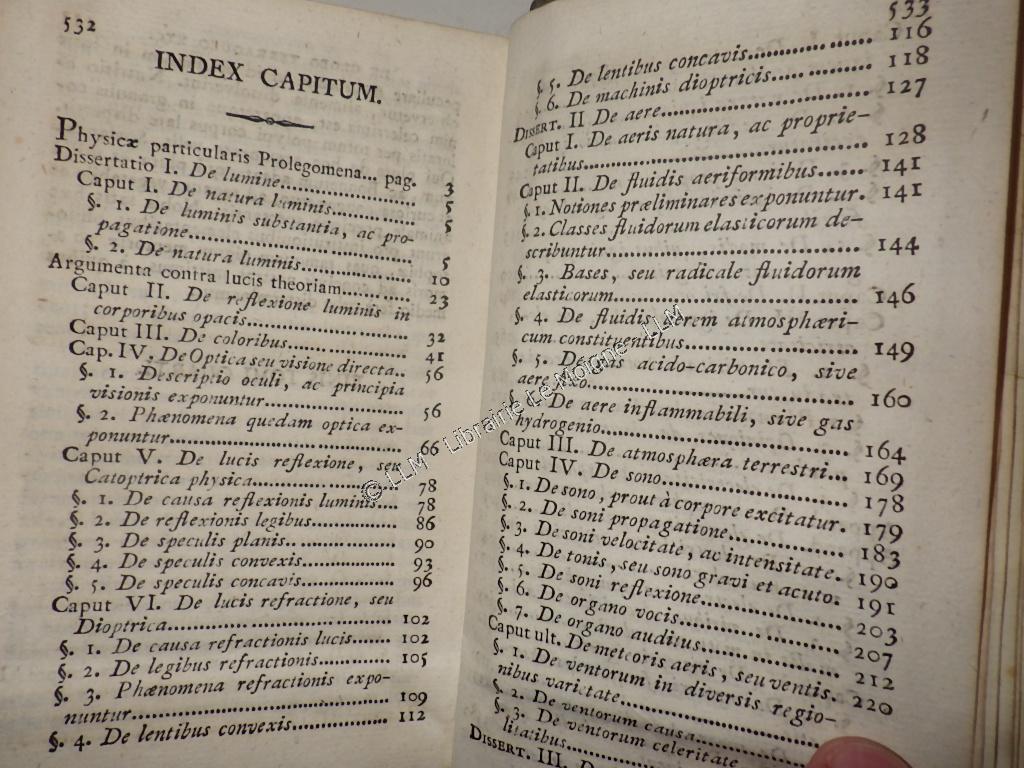 532
INDEX CAPITUM.
Physicæ particularis Prolegomena... pag. 3
Dissertatio I. De lumine.................. 5
Caput I. De natura luminis............ 5
§. 1. De luminis substantia, ac pro-
pagatione................................ 5
§. 2. De natura luminis............... 10
Argumenta contra lucis theoriam......... 23
Caput II. De reflexione luminis in
corporibus opacis...................... 32
Caput III. De coloribus.................. 41
Cap. IV. De Optica seu visione directa.. 56
§. 1. Descriptio oculi, ac principia
visionis exponuntur.................... 56
§. 2. Phænomena quedam optica ex-
ponuntur................................ 66
Caput V. De lucis reflexione, seu
Catoptrica physica..................... 78
§. 1. De causa reflexionis luminis.... 78
§. 2. De reflexionis legibus............ 86
§. 3. De speculis planis................ 90
§. 4. De speculis convexis.............. 93
§. 5. De speculis concavis.............. 96
Caput VI. De lucis refractione, seu
Dioptrica................................ 102
§. 1. De causa refractionis lucis...... 102
§. 2. De legibus refractionis........... 105
§. 3. Phænomena refractionis expo-
nuntur................................... 109
§. 4. De lentibus convexis.............. 112
533
§. 5. De lentibus concavis.............. 116
§. 6. De machinis dioptricis............ 118
DISSERT. II De aere....................... 127
Caput I. De aeris natura, ac proprie-
tatibus.................................. 128
Caput II. De fluidis aeriformibus...... 141
§. 1. Notiones præliminares exponuntur. 141
§. 2. Classes fluidorum elasticorum de-
scribuntur............................... 144
§. 3. Bases, seu radicale fluidorum
elasticorum.............................. 146
§. 4. De fluidis aerem atmosphæri-
cum constituentibus.................... 149
§. 5. De acido-carbonico, sive
aere ........ 160
§. De aere inflammabili, sive gas
hydrogenio............................... 164
Caput III. De atmosphæra terrestri... 169
Caput IV. De sono......................... 178
§. 1. De sono, prout à corpore excitatur. 179
§. 2. De soni propagatione............. 183
§. 3. De soni velocitate, ac intensitate. 190
§. 4. De tonis, seu sono gravi et acuto. 191
§. 5. De soni reflexione................ 203
§. 6. De organo vocis................... 207
§. 7. De organo auditus................. 212
Caput ult. De meteoris aeris, seu ventis. 220
§. 1. De ventorum in diversis regio-
nibus varietate.........
§. 2. De ventorum causa.........
§. 3. De ventorum celeritate
litatibus.........
DISSERT. III.
© LLM - Librairie Le Moigne - LLM